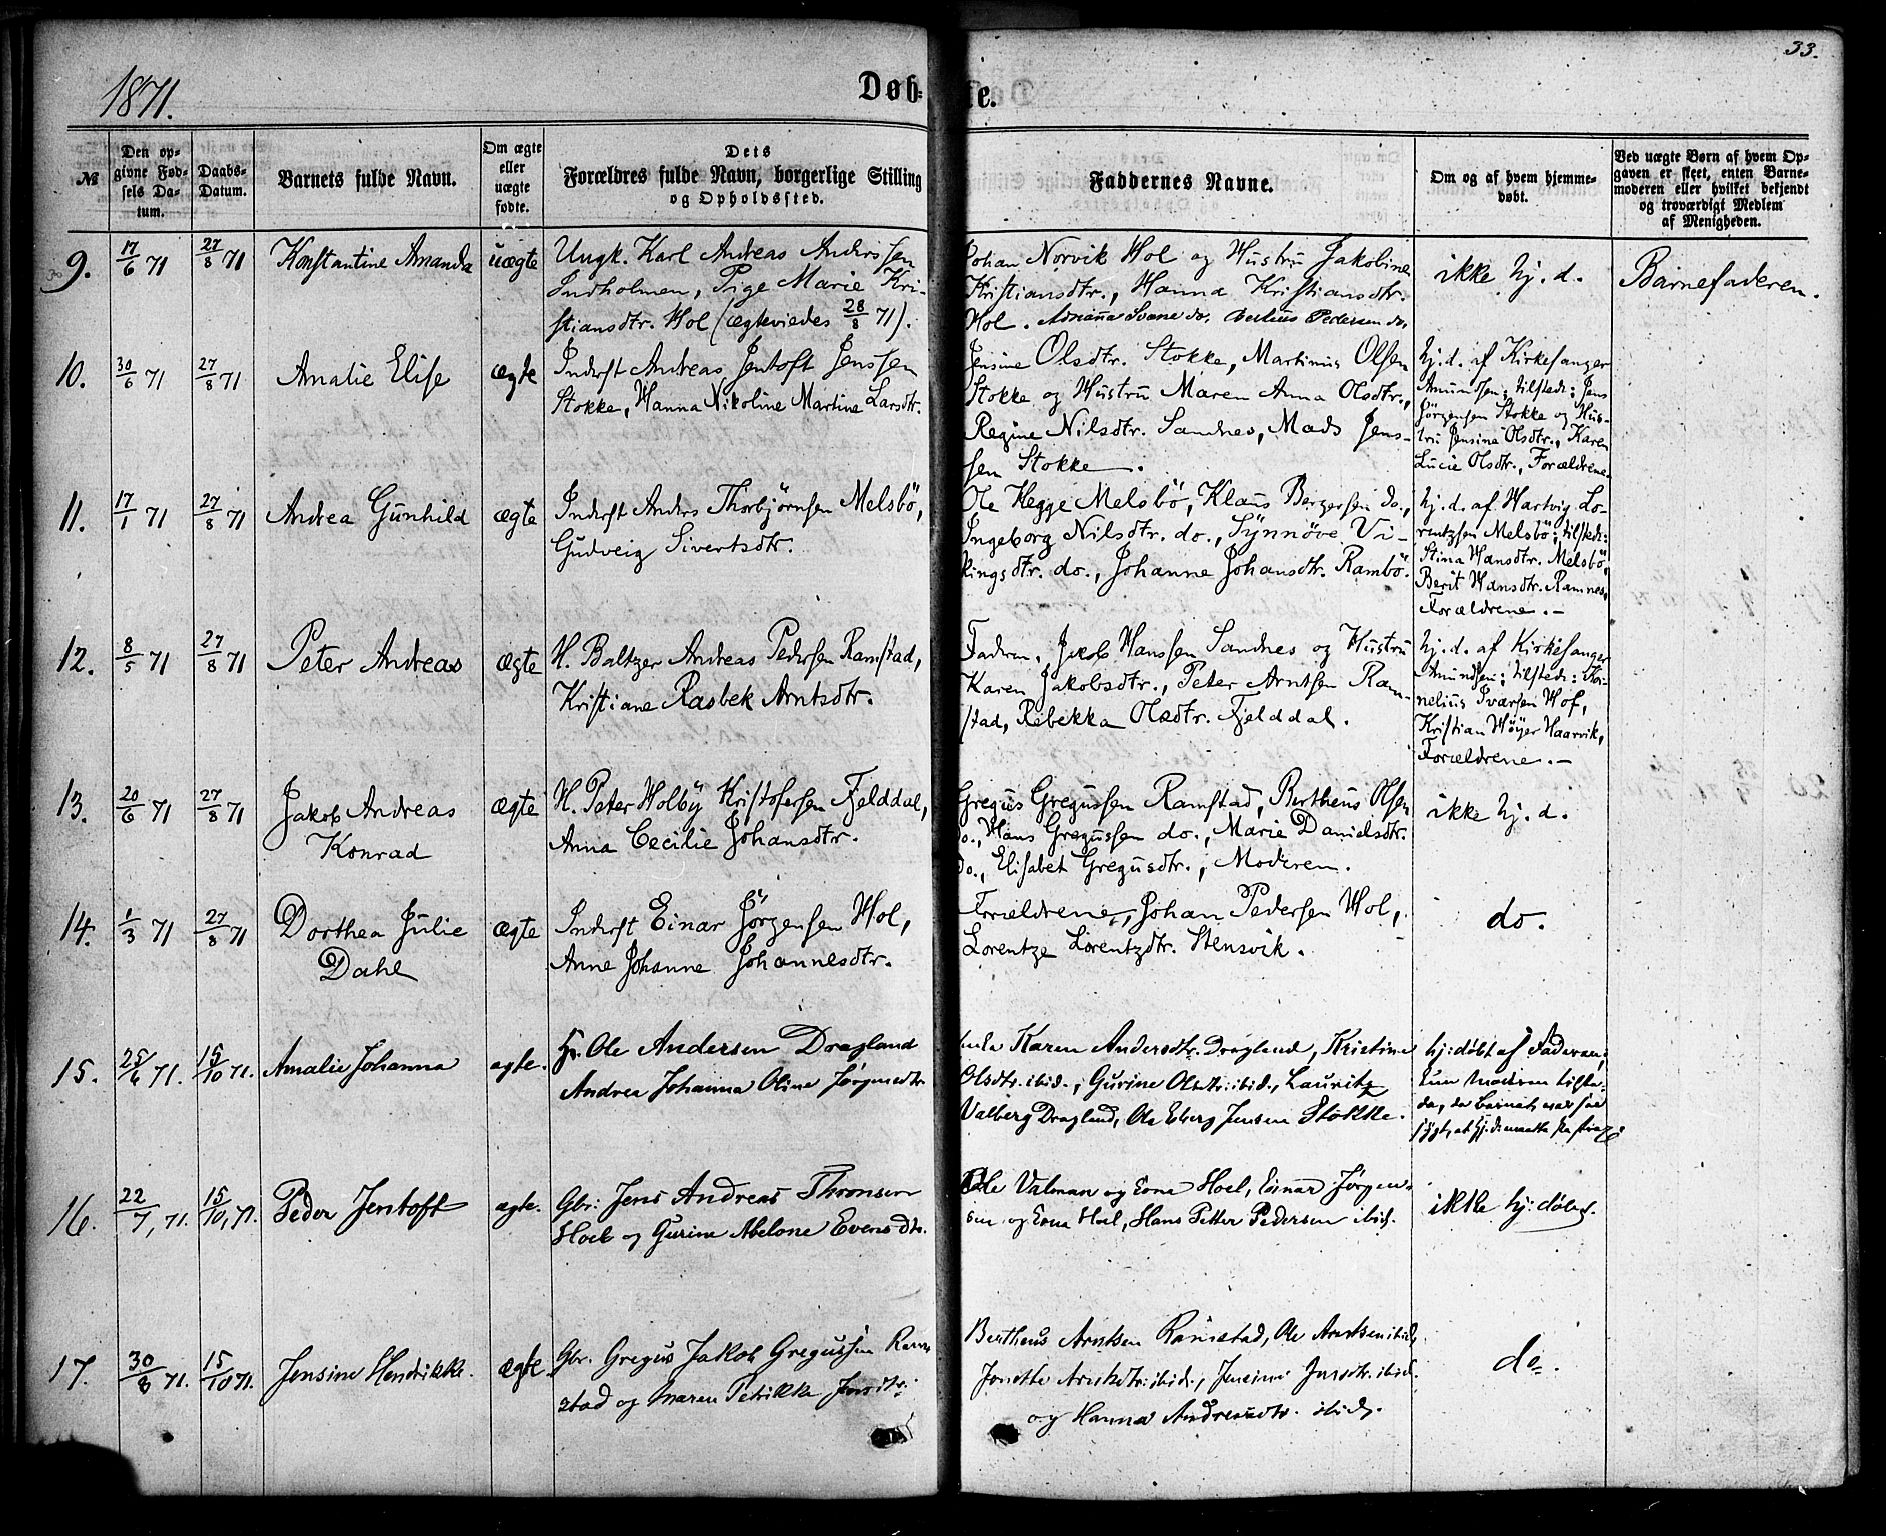 33.
1871.
Døbte.
№
Den opgivne Fødsels Datum.
Daabs-Datum.
Barnets fulde Navn.
Om ægte eller uægte fødte.
Dets Forældres fulde Navn, borgerlige Stilling og Opholdssted.
Faddernes Navne.
Om og af hvem hjemmedøbt.
Ved uægte Børn af hvem Opgaven er skeet, enten Barnemoderen eller hvilket bekjendt og troværdigt Medlem af Menigheden.
9.
17/6 71
27/8 71
Konstantine Amanda
uægte
Ungk. Karl Andreas Anderssen
Indholmen, Pige Marie Kri-
stiansdtr. Hol (ægteviedes 28/8 71).
Johan Norvik Hol og Hustru Jakobine
Kristiansdtr., Hanna Kristiansdtr.
Hol. Adriana Svane do. Bertheus Pedersen do.
ikke hj. d.
Barnefaderen.
10.
30/6 71
27/8 71
Amalie Elise
ægte
Inderst Andreas Jentoft Jenssen
Stokke, Hanna Nikoline Martine Larsdtr.
Jensine Olsdtr. Stokke, Martinus Olsen
Stokke og Hustru Maren Anna Olsdtr.,
Regine Nilsdtr. Sandnes, Mads Jens-
sen Stokke.
hj. d. af Kirkesanger
Amundsen; tilstede: Jens
Jörgensen Stokke og Hus-
tru Jensine Olsdtr., Karen
Lucie Olsdtr., Forældrene.
11.
17/1 71
27/8 71
Andrea Gunhild
ægte
Inderst Anders Thorbjørnsen Melsbö,
Gudveig Sivertsdtr.
Ole Hegge Melsbö, Klaus Bergersen do.,
Ingeborg Nilsdtr. do., Synnöve Vi-
kingsdtr. do., Johanne Johansdtr. Rambö.
hj. d. af Hartvig Lo-
rentzsen Melsbö; tilstede:
Stina Hansdtr. Melsbö,
Berit Hansdtr. Ramnes,
Forældrene. -
12.
8/5 71
27/8 71
Peter Andreas
ægte
H. Baltzer Andreas Pedersen Ramstad,
Kristiane Rasbek Arntsdtr.
Faderen, Jakob Hanssen Sandnes og Hustru
Karen Jakobsdtr., Peter Arntsen Ram-
stad, Rebekka Olsdtr. Fjelddal.
hj. d. af Kirkesanger
Amundsen; tilstede: Kor-
nelius Ivarsen Hof,
Kristian Höyer Haarvik,
Forældrene. -
13.
20/6 71
27/8 71
Jakob Andreas
Konrad
ægte
H. Peter Holby Kristofersen Fjelddal,
Anna Cecilie Johansdtr.
Gregus Gregussen Ramstad, Bertheus Olsen
do., Hans Gregussen do., Marie Danielsdtr.
do., Elisabet Gregusdtr., Moderen.
ikke hj. d.
14.
1/3 71
27/8 71
Dorthea Julie
Dahl
ægte
Inderst Einar Jörgensen Hol,
Anne Johanne Johannesdtr.
Forældrene, Johan Pedersen Hol,
Lorentze Lorentzdtr. Stensvik.
do.
15.
25/6 71.
15/10 71.
Amalie Johanna
ægte.
Gbr. Ole Andersen Dragland
Andrea Johanna Oline Jørgensdtr
Karen Andersdtr. Dragland, Kristine
Olsdtr. ibid., Gurine Olsdtr. ibid., Lauritz
Valberg Dragland, Ole Eberg Jensen Stokke.
hj: døbt af Faderen,
kun Modren tilste-
de, da barnet var saa
sygt, at hj. d. maatte
16.
22/7, 71.
15/10, 71.
Peder Jentoft
ægte.
Gbr: Jens Andreas Thronsen
Hoel og Gurine Abelone Evensdtr.
Ole Valman og Kone Hoel, Einar Jørgen-
sen og Kone Hoel, Hans Petter Pedersen ibid.
ikke hj: døbt.
17.
30/8 71.
15/10 71.
Jensine Hendrikke.
ægte.
Gbr. Gregus Jakob Gregussen Ram-
stad og Maren Petrikke
Bertheus Arntsen Ramstad, Ole Arntsen ibid,
Jonette Arntsdtr. ibid., Jensine Jensdtr. ibid.
og Hanna Andreasdtr. ibid.
do.